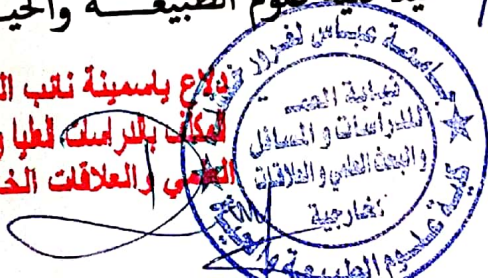 علوم الطبيعة والحيـ
دلاع ياسمينة نائب ال
المكلف بالدراسات العليا و
العلمي والعلاقات الخـ
جامعة عباس لغرور خنشلة
نيابة العمـ
للدراسات و المسائل
والبحث العلمي و العلاقات
الخارجية
كلية علوم الطبيعة والحياة